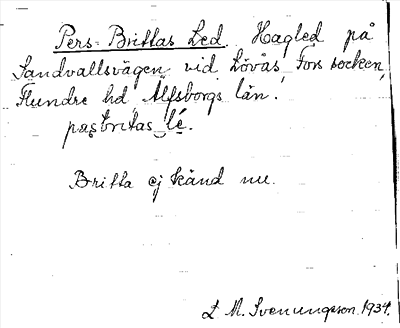 Pers-Brittas Led. Hagled på
Sandvallsvägen vid Lövås, Fors socken,
Flundre hd, Älfsborgs län.
pasbritas lé.
Britta ej känd nu.
L M. Svenungsson. 1934.